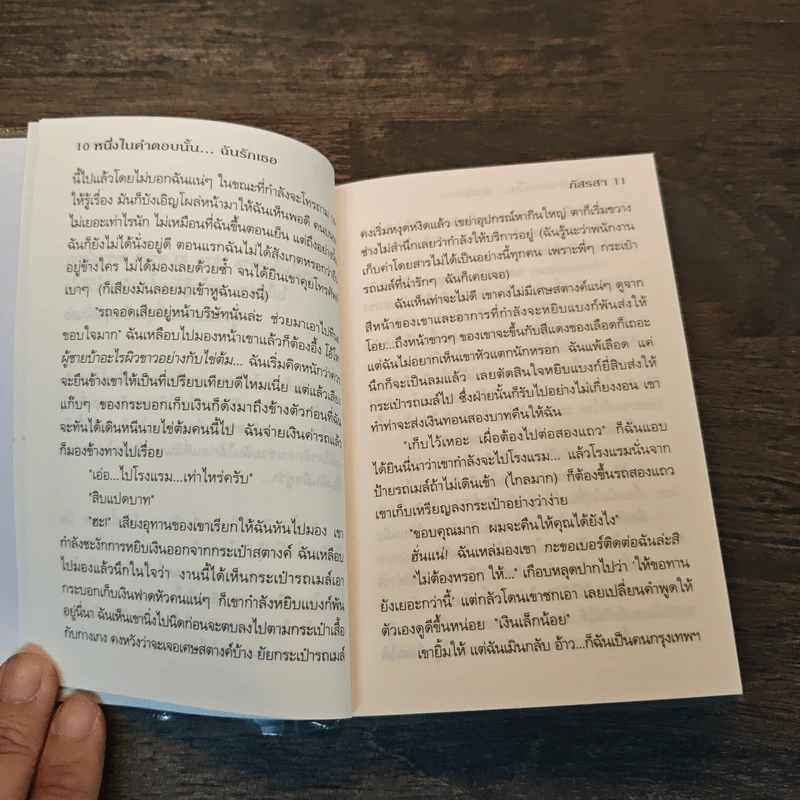 10 หนึ่งในคำตอบนั้น... ฉันรักเธอ
นี้ไปแล้วโดยไม่บอกฉันแน่ๆ ในขณะที่กำลังจะโทรถาม
ให้รู้เรื่อง มันก็บังเอิญโผล่หน้ามาให้ฉันเห็นพอดี คนบนรถ
ไม่เยอะเท่าไรนัก ไม่เหมือนที่ฉันขึ้นตอนเย็น แต่ถึงอย่างนั้น
ฉันก็ยังไม่ได้นั่งอยู่ดี ตอนแรกฉันไม่ได้สังเกตหรอกว่ายืน
อยู่ข้างใคร ไม่ได้มองเลยด้วยซ้ำ จนได้ยินเขาคุยโทรศัพท์
เบาๆ (ก็เสียงมันลอยมาเข้าหูฉันเองนี่)
"รถจอดเสียอยู่หน้าบริษัทนั่นล่ะ ช่วยมาเอาไปที
ขอบใจมาก" ฉันเหลือบไปมองหน้าเขาแล้วก็ต้องอึ้ง โอ้โห
ผู้ชายบ้าอะไรผิวขาวอย่างกับไข่ต้ม... ฉันเริ่มคิดหนักว่าควร
จะยืนข้างเขาให้เป็นที่เปรียบเทียบดีไหมเนี่ย แต่แล้วเสียง
แก๊บๆ ของกระบอกเก็บเงินก็ดังมาถึงข้างตัวก่อนที่ฉัน
จะทันได้เดินหนีนายไข่ต้มคนนี้ไป ฉันจ่ายเงินค่ารถแล้ว
ก็มองข้างทางไปเรื่อย
"เอ่อ...ไปโรงแรม...เท่าไหร่ครับ"
"สิบแปดบาท"
"ฮะ!" เสียงอุทานของเขาเรียกให้ฉันหันไปมอง เขา
กำลังชะงักการหยิบเงินออกจากกระเป๋าสตางค์ ฉันเหลือบ
ไปมองแล้วนึกในใจว่า งานนี้ได้เห็นกระเป๋ารถเมล์เอา
กระบอกเก็บเงินฟาดหัวคนแน่ๆ ก็เขากำลังหยิบแบงก์พัน
อยู่นี่นา ฉันเห็นเขานิ่งไปนิดก่อนจะตบลงไปตามกระเป๋าเสื้อ
กับกางเกง คงหวังว่าจะเจอเศษสตางค์บ้าง ยัยกระเป๋ารถเมล์
ภัสรสา 11
คงเริ่มหงุดหงิดแล้ว เขย่าอุปกรณ์หากินใหญ่ ตาก็เริ่มขวาง
ช่างไม่สำนึกเลยว่ากำลังให้บริการอยู่ (ฉันรู้นะว่าพนักงาน
เก็บค่าโดยสารไม่ได้เป็นอย่างนี้ทุกคน เพราะพี่ๆ กระเป๋า
รถเมล์ที่น่ารักๆ ฉันก็เคยเจอ)
ฉันเห็นท่าจะไม่ดี เขาคงไม่มีเศษสตางค์แน่ๆ ดูจาก
สีหน้าของเขาและอาการที่กำลังจะหยิบแบงก์พันส่งให้
โอย...ถึงหน้าขาวๆ ของเขาจะขึ้นกับสีแดงของเลือดก็เถอะ
แต่ฉันไม่อยากเห็นเขาหัวแตกนักหรอก ฉันแพ้เลือด แค่
นึกก็จะเป็นลมแล้ว เลยตัดสินใจหยิบแบงก์ยี่สิบส่งให้
กระเป๋ารถเมล์ไป ซึ่งฝ่ายนั้นก็รับไปอย่างไม่เกี่ยงงอน เขา
ทำท่าจะส่งเงินทอนสองบาทคืนให้ฉัน
"เก็บไว้เหอะ เผื่อต้องไปต่อสองแถว" ก็ฉันแอบ
ได้ยินนี่นาว่าเขากำลังจะไปโรงแรม... แล้วโรงแรมนั่นจาก
ป้ายรถเมล์ถ้าไม่เดินเข้า (ไกลมาก) ก็ต้องขึ้นรถสองแถว
เขาเก็บเหรียญลงกระเป๋าอย่างว่าง่าย
"ขอบคุณมาก ผมจะคืนให้คุณได้ยังไง"
ฮั่นแน่! ฉันเหล่มองเขา กะขอเบอร์ติดต่อฉันล่ะสิ
"ไม่ต้องหรอก ให้..." เกือบหลุดปากไปว่า 'ให้ขอทาน
ยังเยอะกว่านี้' แต่กลัวโดนเขาชกเอา เลยเปลี่ยนคำพูดให้
ตัวเองดูดีขึ้นหน่อย "เงินเล็กน้อย"
เขายิ้มให้ แต่ฉันเมินกลับ อ้าว...ก็ฉันเป็นคนกรุงเทพฯ